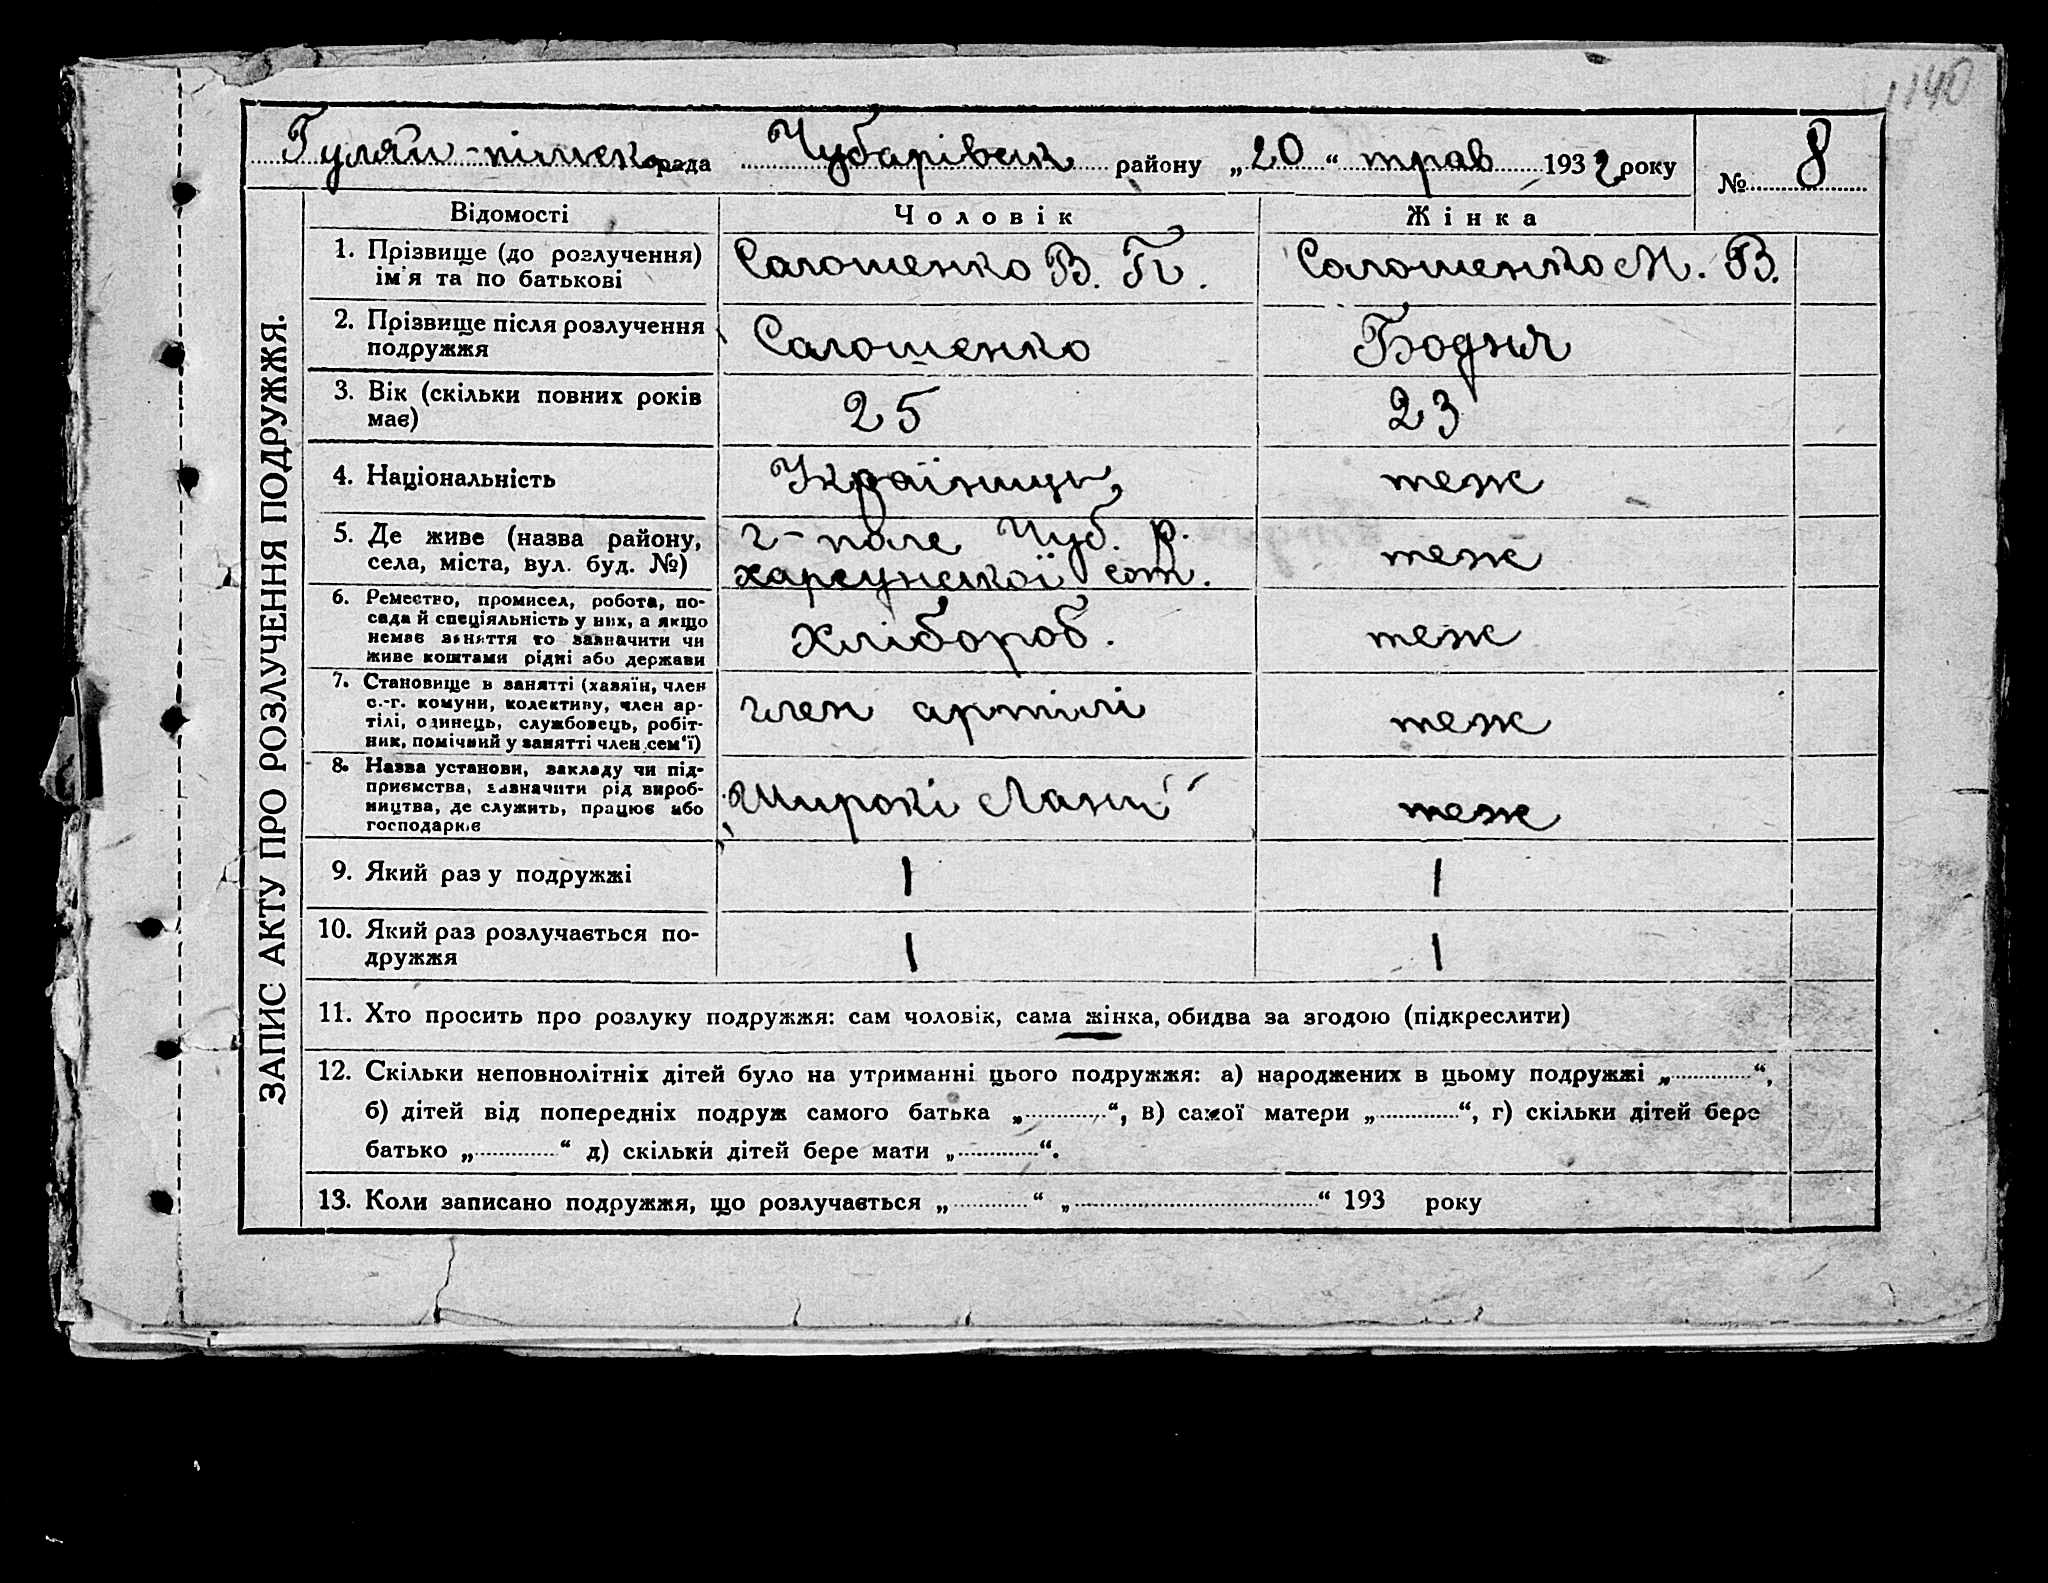 140
Гуляй-пільськ рада Чубарівськ району „20“ трав 1932 року № 8
ЗАПИС АКТУ ПРО РОЗЛУЧЕННЯ ПОДРУЖЖЯ.
Відомості Чоловік Жінка
1. Прізвище (до розлучення) ім'я та по батькові Салошенко В. П. Салошенко М. В.
2. Прізвище після розлучення подружжя Салошенко Бодня
3. Вік (скільки повних років має) 25 23
4. Національність Українець теж
5. Де живе (назва району, села, міста, вул. буд. №) г-поле Чуб. р. херсунської сот. теж
6. Ремество, промисел, робота, по-
сада й спеціяльність у них, а якщо
немає заняття то зазначити чи
живе коштами рідні або держави Хлібороб. теж
7. Становище в занятті (хазяїн, член
с.-г. комуни, колективу, член ар-
тілі, одинець, службовець, робіт-
ник, помічний у занятті член сем'ї) член артілі теж
8. Назва установи, закладу чи під-
приємства, зазначити рід вироб-
ництва, де служить, працює або
господарює „Широкі Лани“ теж
9. Який раз у подружжі 1 1
10. Який раз розлучається по-
дружжя 1 1
11. Хто просить про розлуку подружжя: сам чоловік, сама жінка, обидва за згодою (підкреслити)
12. Скільки неповнолітніх дітей було на утриманні цього подружжя: а) народжених в цьому подружжі „..........“,
б) дітей від попередніх подруж самого батька „..........“, в) самої матери „..........“, г) скільки дітей бере
батько „..........“ д) скільки дітей бере мати „..........“.
13. Коли записано подружжя, що розлучається „..........“ „..............................“ 193 року